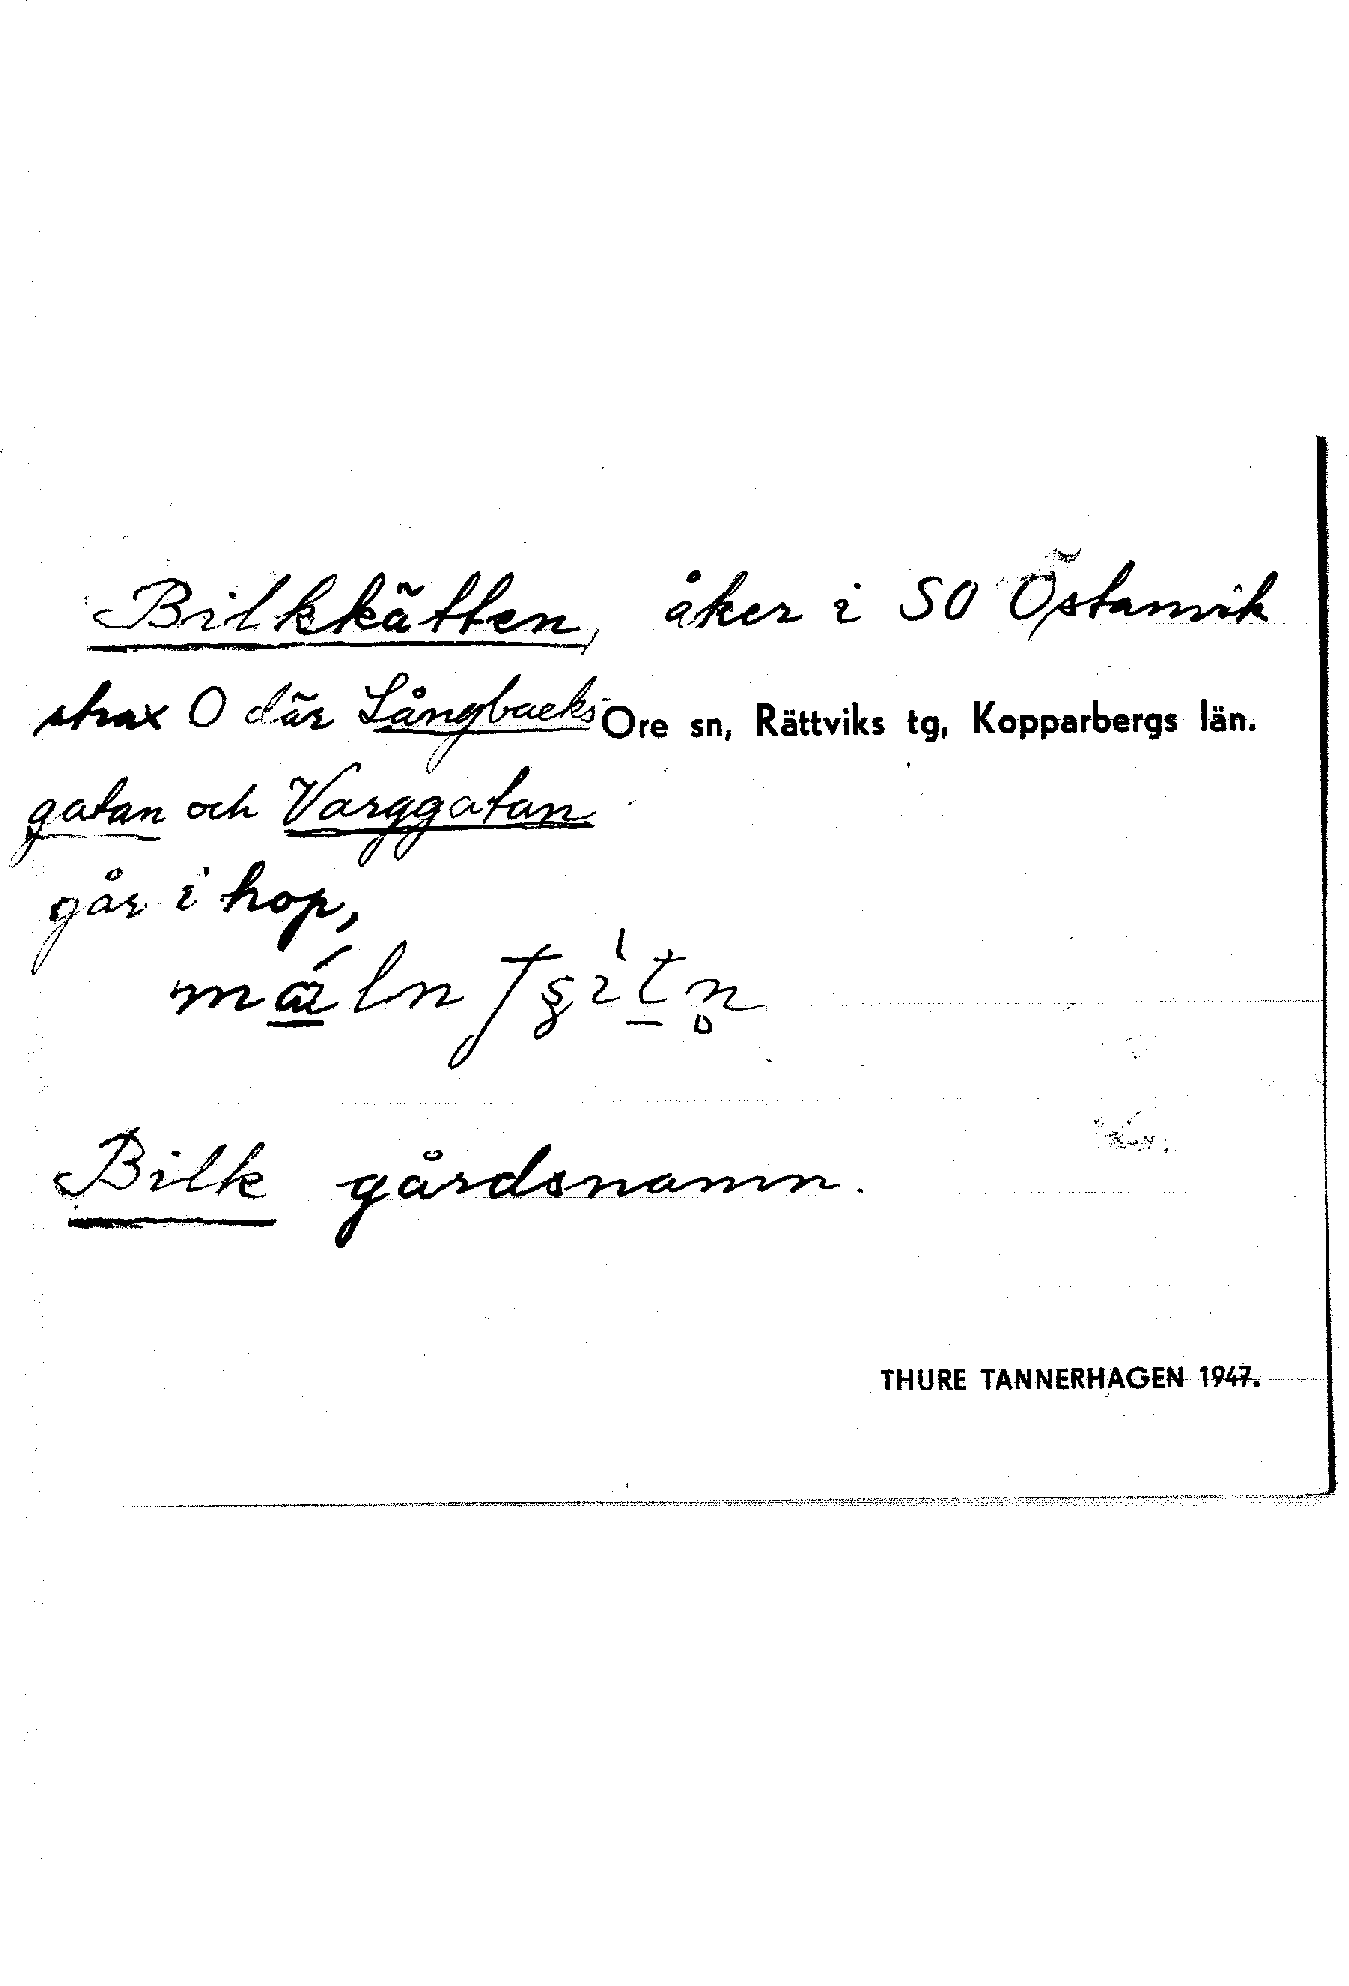 Bilkkätten, åker i SO Östanvik
strax O där Långbacks-
Ore sn, Rättviks tg, Kopparbergs län.
gatan och Varggatan
går i hop,
Bilk gårdsnamn.
THURE TANNERHAGEN 1947.